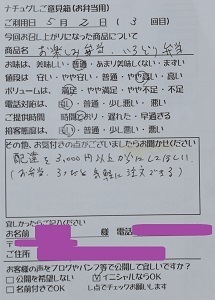 ナチュグレご意見箱(お弁当用)
ご利用日 5月2日(3回目)
今回お召し上がりになった商品について
商品名 お楽しみ弁当、いろどり弁当
お味は、美味しい・普通・あまり美味しくない・まずい
値段は 安い・やや安い・普通・やや高い・高い
ボリュームは 満足・やや満足・やや不満・不満
電話対応は、良い・普通・少し悪い・悪い
ご提供時間 時間どおり・遅れた・早過ぎる
接客態度は、良い・普通・少し悪い・悪い
その他、お気付きの点がございましたらお聞かせください
配達を3,000円以上からにしてほしい
(お弁当、3人分を気軽に注文できる)
宜しかったらご記入ください
お名前 様 電話
〒
ご住所
お客様の声をブログやパンフ等で公開して宜しいですか?
□公開を希望しない ☑イニシャルならOK
□名前付きでOK レ点でチェックお願いします